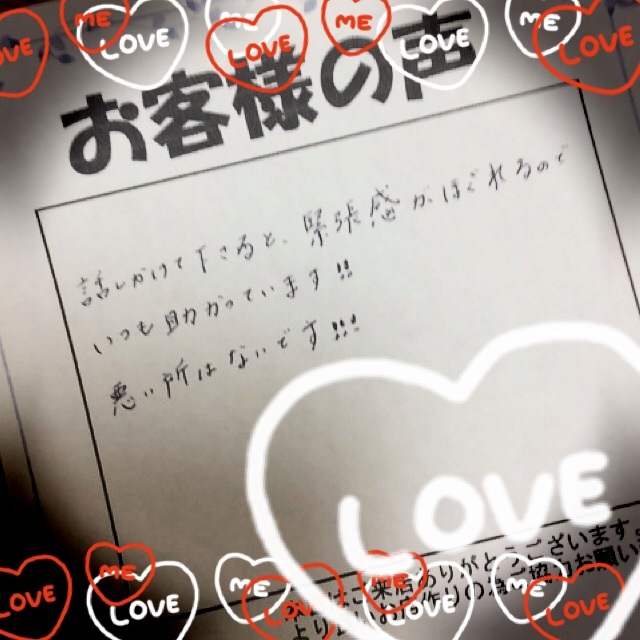 ME LOVE ME LOVE ME LOVE ME LOVE
お客様の声
話しかけて下さると、緊張感がほぐれるので
いつも助かっています!!
悪い所はないです!!!
LOVE
ご来店ありがとうございます
LOVE ME LOVE ME LOVE ME ME LOVE